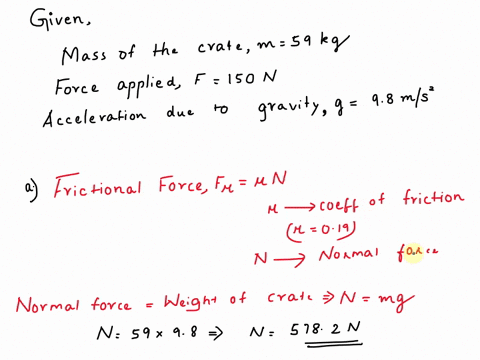 Given,
Mass of the crate, m = 59 kg
Force applied, F = 150 N
Acceleration due to gravity, g = 9.8 m/s²
a) Frictional Force, Fμ = μ N
μ → coeff of friction
(μ = 0.19)
N → Normal force
Normal force = Weight of crate ⇒ N = mg
N = 59 × 9.8 ⇒ N = 578.2 N